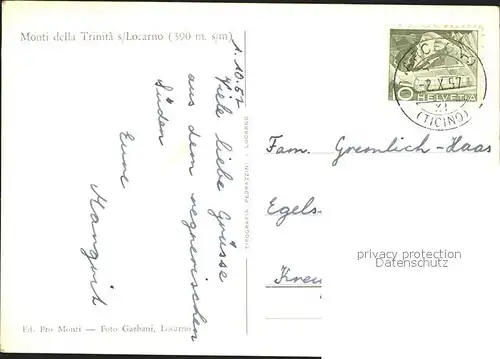 Monti della Trinità s/Locarno (390 m. s/m)
1.10.57
Viele liebe Grüsse
aus dem regnerischen
Süden
Eure
TIPOGRAFIA PEDRAZZINI - LOCARNO
10
HELVETIA
-2.X.57
XI
(TICINO)
Fam. Gremlich-Haas
Egels-
Kreu
privacy protection
Datenschutz
Ed. Pro Monti — Foto Garbani, Locarno